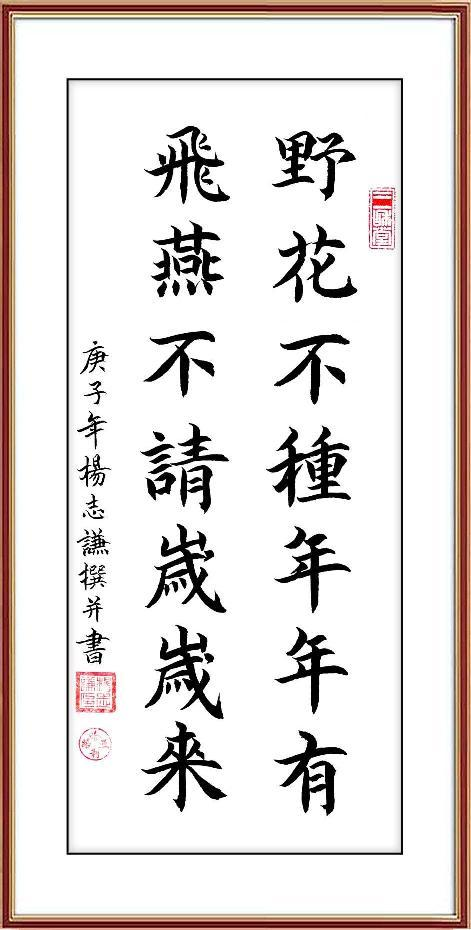 野花不種年年有
飛燕不請歲歲來
庚子年楊志謙撰并書